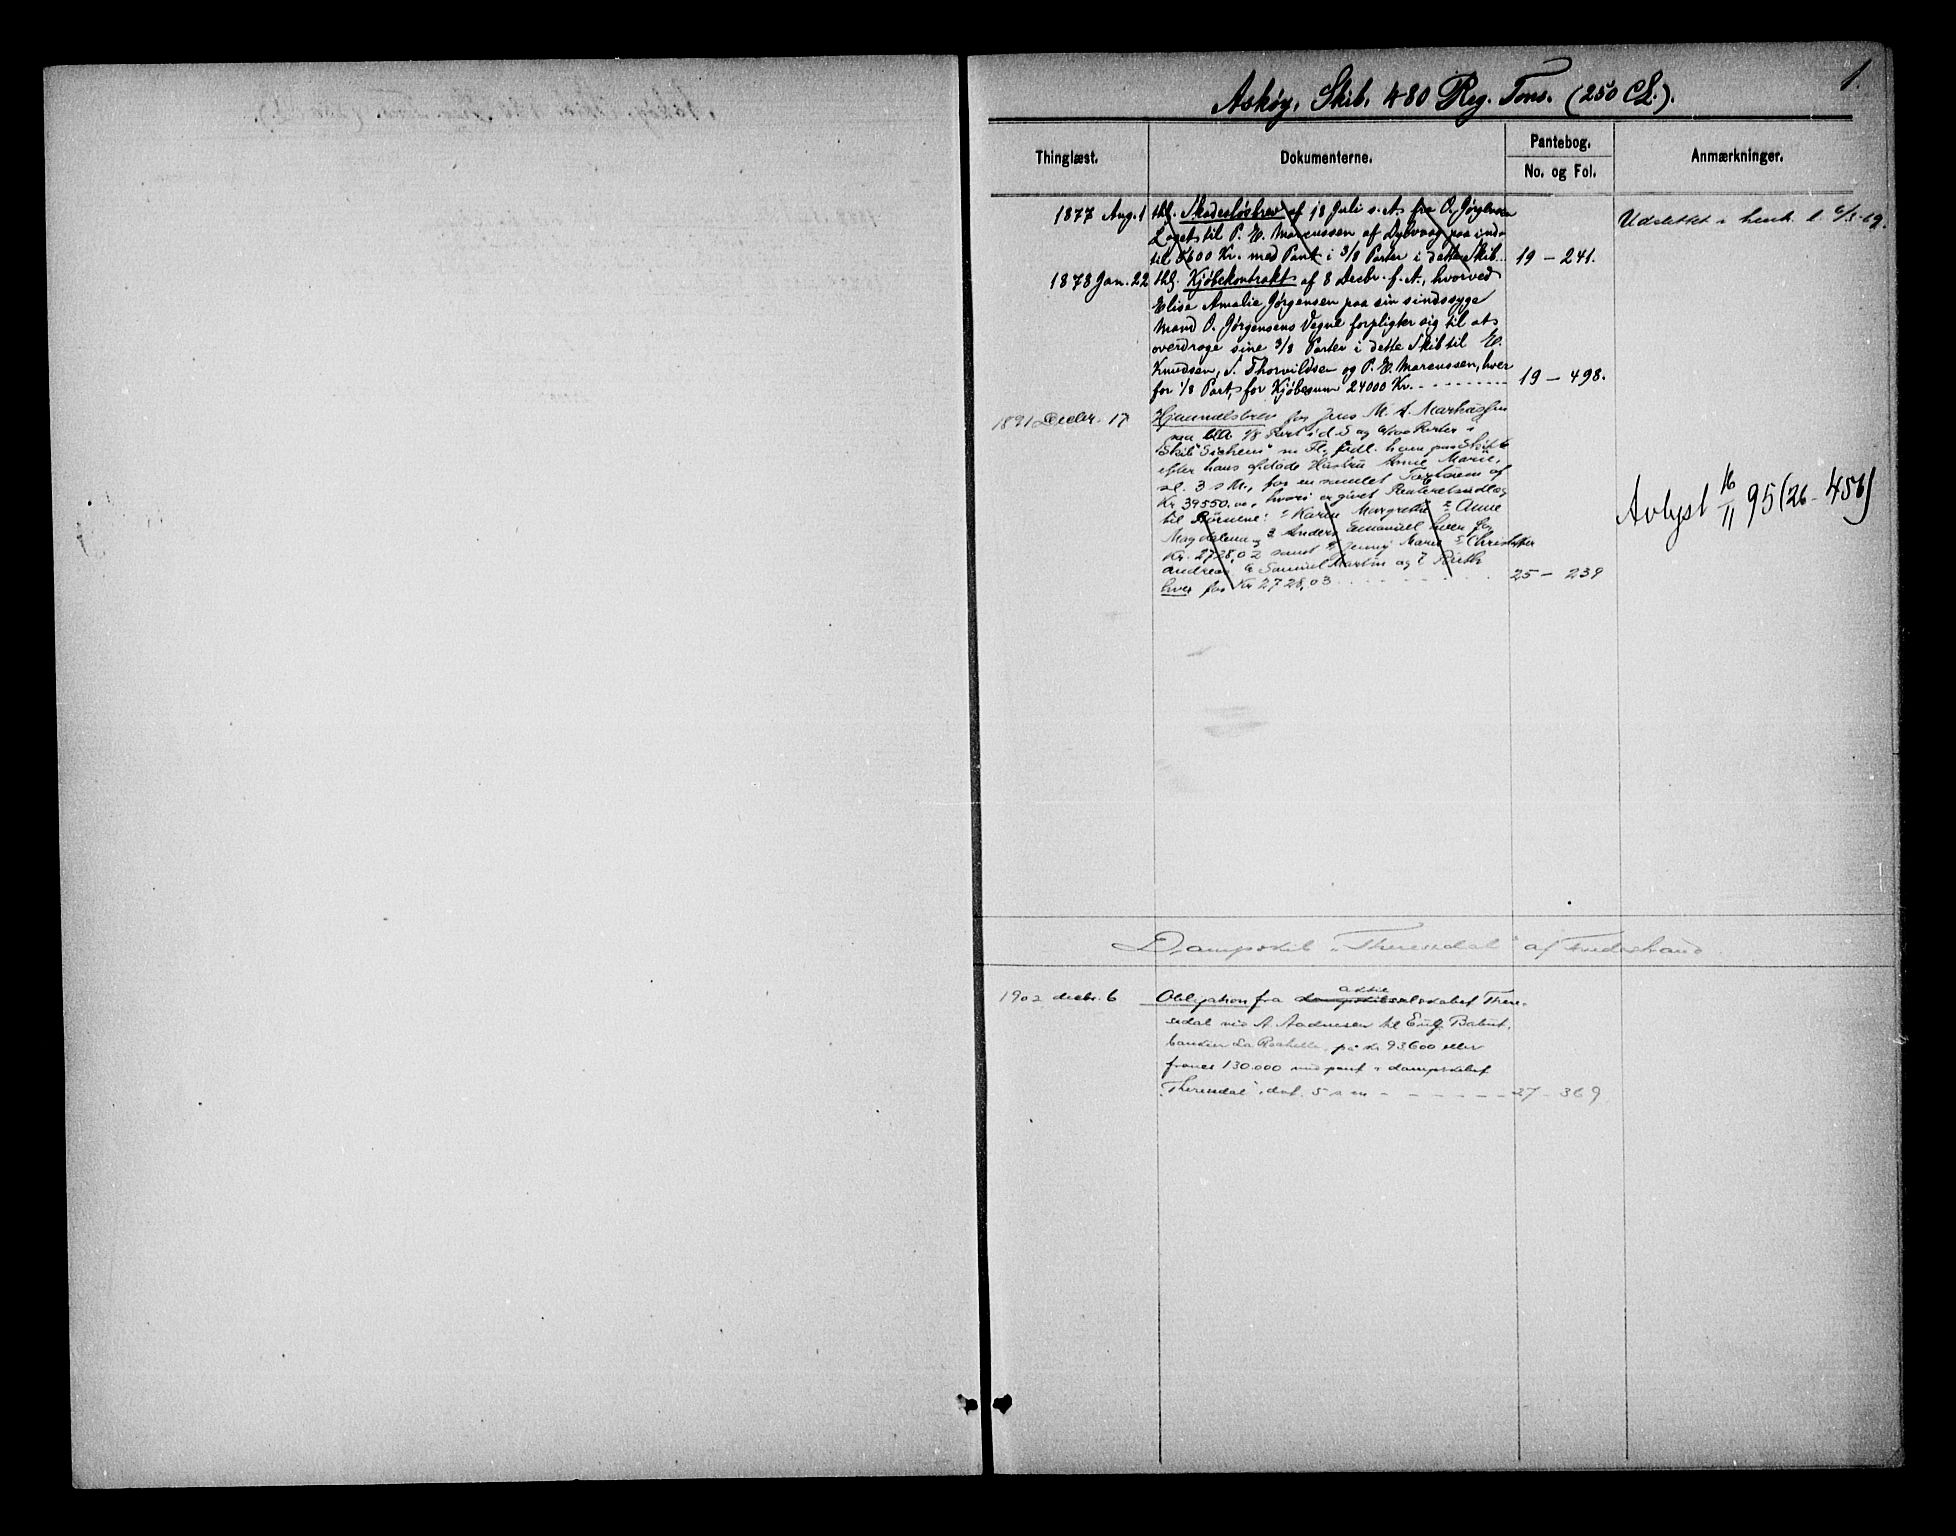 1.
Askøy, Skib, 480 Reg. Tons. (250 CL.).
Thinglæst. Dokumenterne. Pantebog. No. og Fol. Anmærkninger.
1877 Aug. 1 thl. Skadesløsbrev af 18 Juli s. A. fra O. Jørgensen
til P. W. Marcussen af paa indtil
6600 Kr. med Pant i 3/8 Parter i dette Skib.. 19 – 241. Udslettet i henh. t.
1878 Jan. 22 thl. Kjøbekontrakt af 8 Decbr. f. A., hvorved
Elise Amalie Jørgensen paa sin sindssyge
Mand O. Jørgensens Vegne forpligter sig til at
overdrage sine 3/8 Parter i dette Skib til W.
Knudsen, S. Thorvildsen og P. W. Marcussen, hver
for 1/8 Part, for Kjøbesum 24000 Kr. - - - - - - - - 19 – 498.
1891 Decbr. 17 Hjemmelsbrev for Jens M. A.
paa 1/8 Part i d. S og Parter i
Skib "Sichem" m Fl., ham paa Skifte
efter hans afdøde Hustru Anne Marie,
af. 3 s. M., for en samlet af
Kr 39550.00, hvori er givet
til Børnene: 1 Karen Margrethe 2 Anne
Magdalena, 3 Anders Emanuel hver for
Kr. 2728,02 samt 4 Jenny Marie 5
Andreas, 6 Samuel Martin og 7 Ruth
hver for Kr 2728,03 - - - - - - - 25 – 239
Avlyst 16/11 95 (26 - 456)
Dampskib "Theresdal" af
1902 decbr. 6 Obligation fra aktieselskabet Theresdal
ved A. Aadnesen til Eug. Babut,
bankier La Rochelle, på kr 93600 eller
francs 130.000 med pant i dampskibet
"Theresdal", dat. 5 s. m - - - - - - 27 – 369